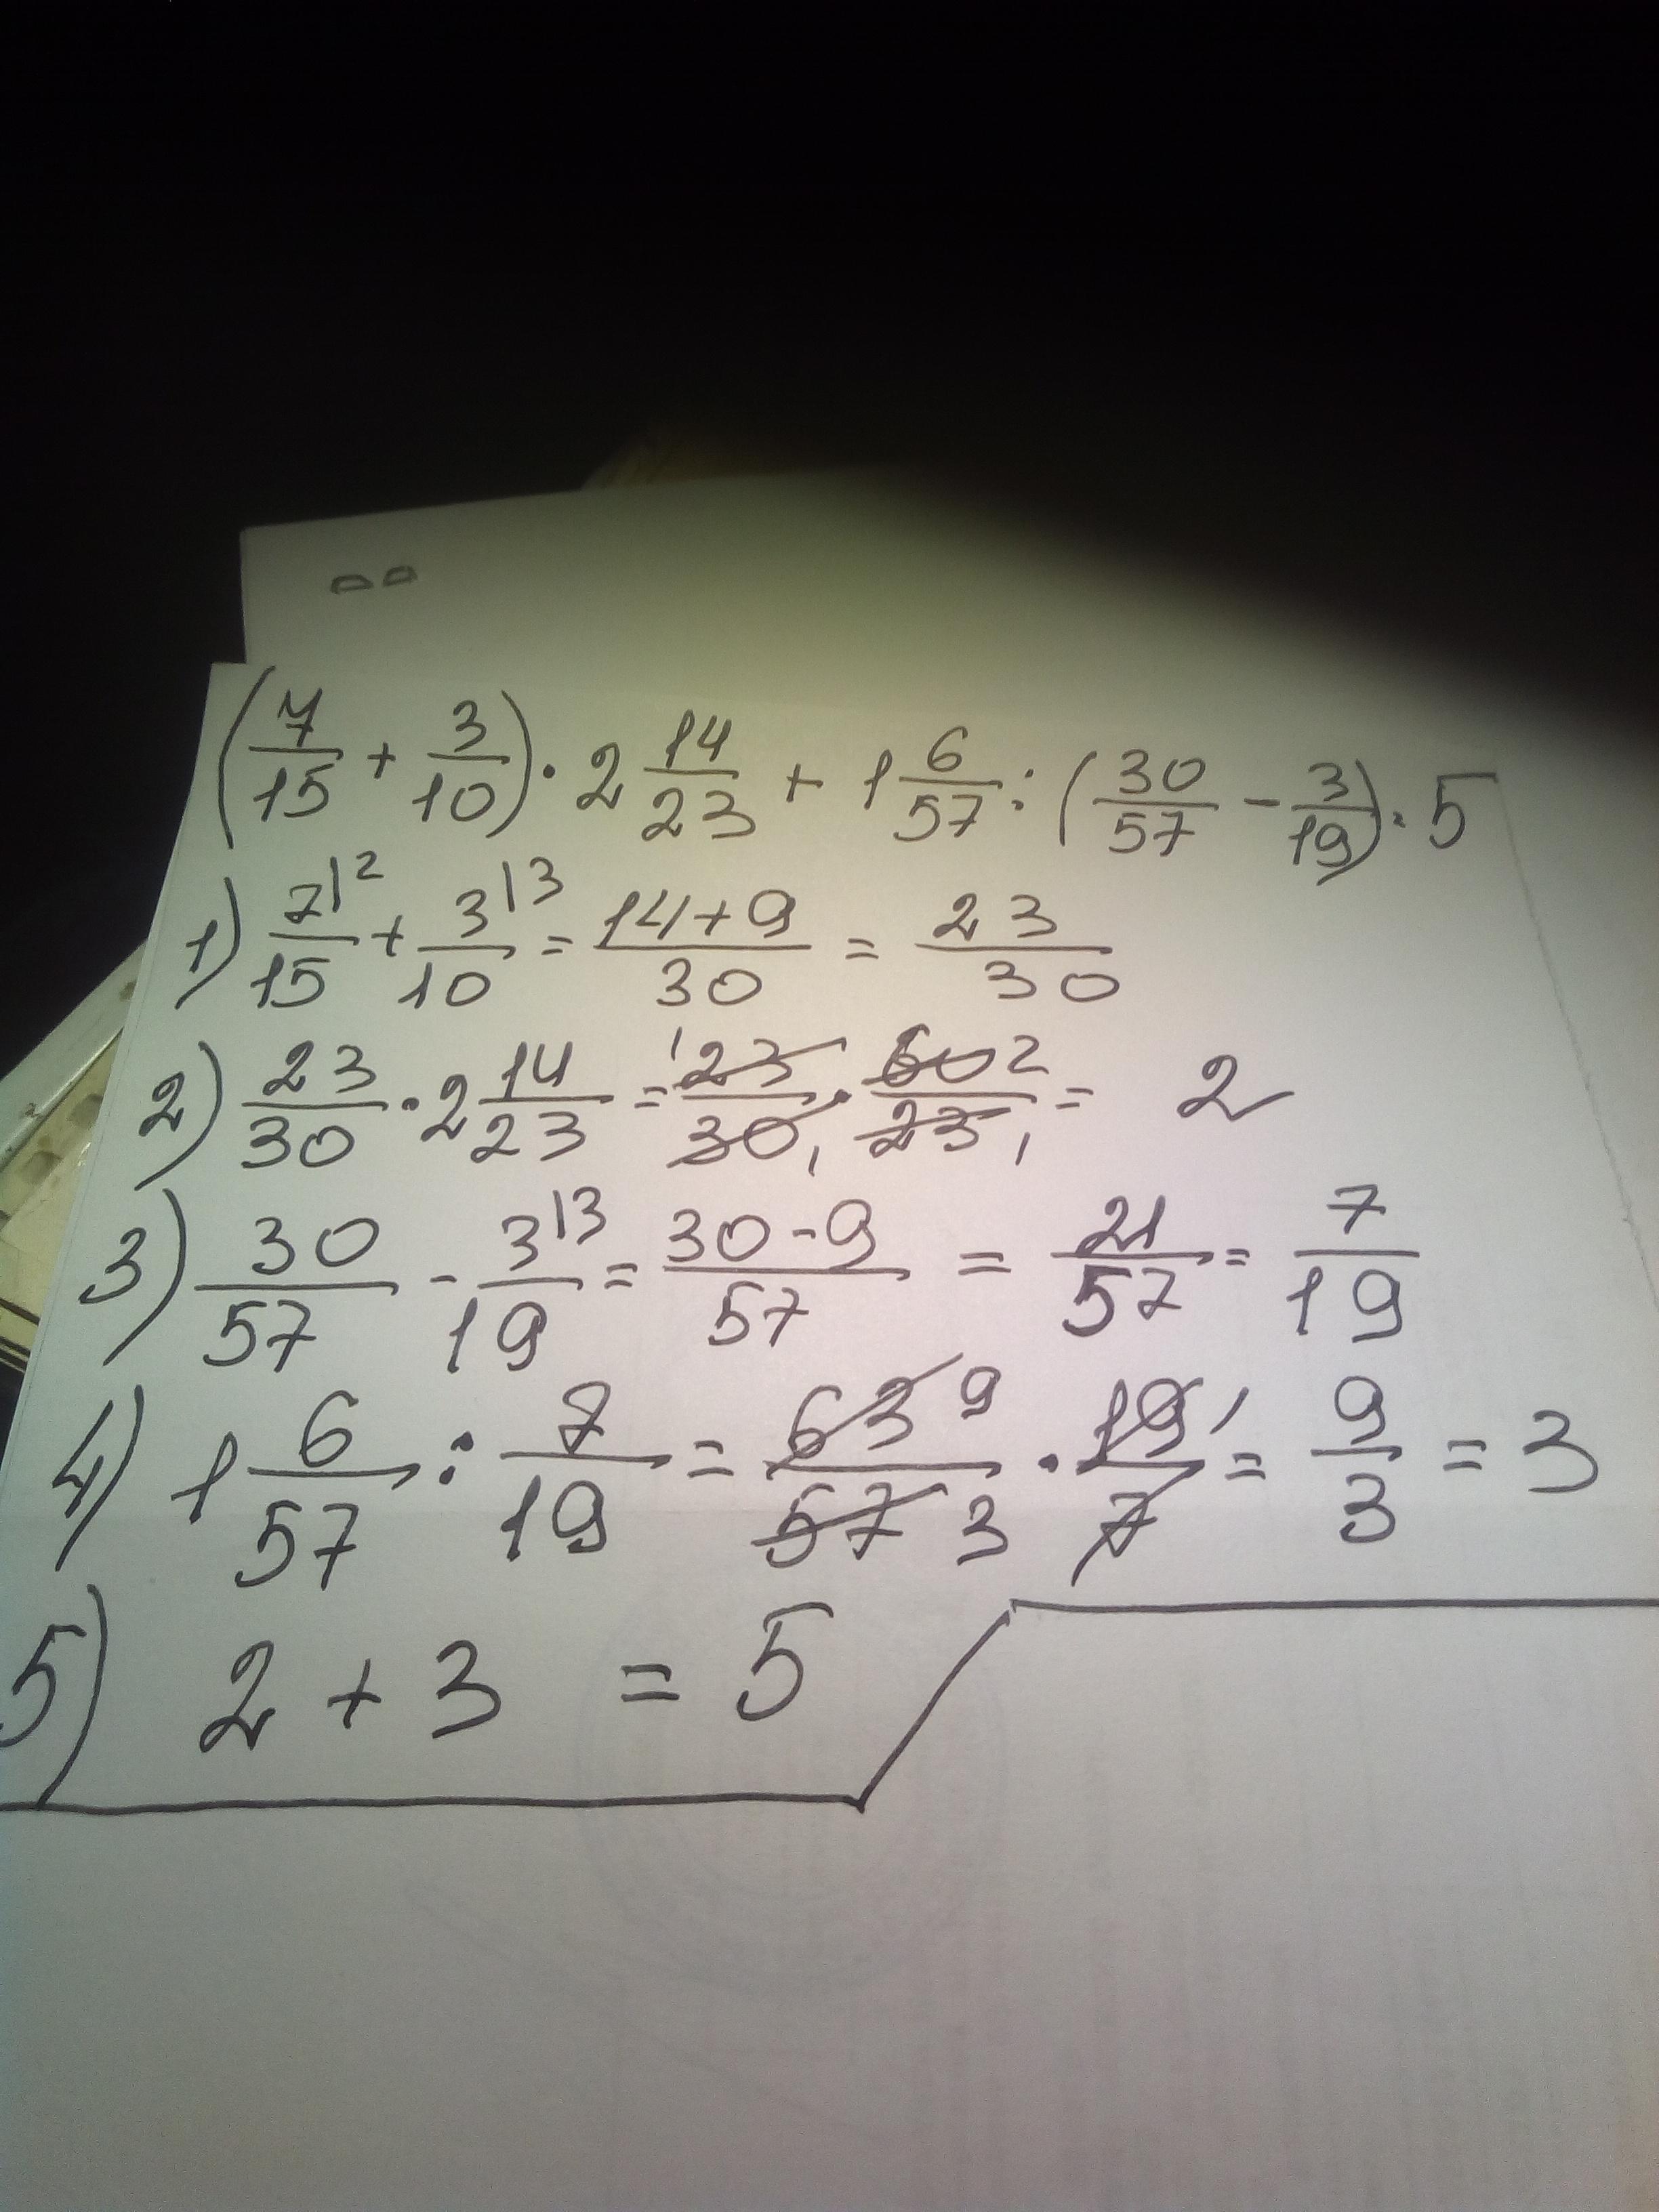 (7/15 + 3/10) · 2 14/23 + 1 6/57 : (30/57 - 3/19) = 5
1) 7|2/15 + 3|3/10 = 14+9/30 = 23/30
2) 23/30 · 2 14/23 = 1 23/30 1 · 60 2/23 1 = 2
3) 30/57 - 3|3/19 = 30-9/57 = 21/57 = 7/19
4) 1 6/57 : 7/19 = 63 9/57 3 · 19 1/7 = 9/3 = 3
5) 2 + 3 = 5